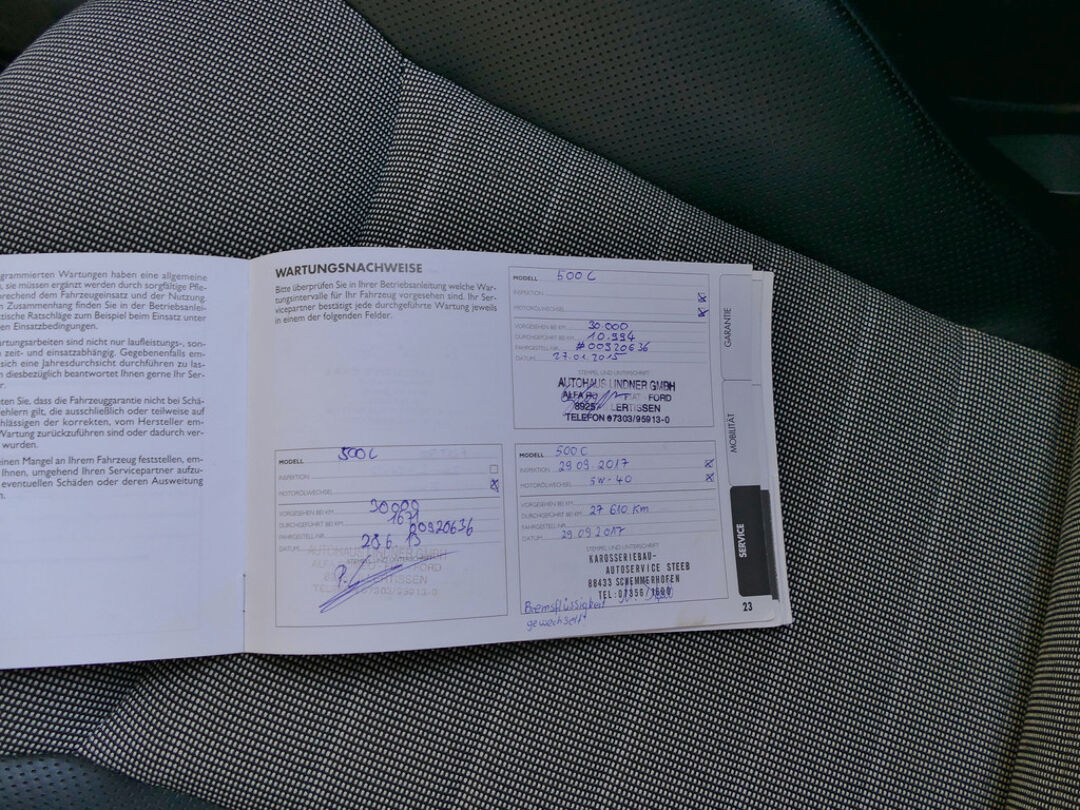 grammierten Wartungen haben eine allgemeine
, sie müssen ergänzt werden durch sorgfältige Pfle-
rechend dem Fahrzeugeinsatz und der Nutzung.
n Zusammenhang finden Sie in der Betriebsanlei-
tische Ratschläge zum Beispiel beim Einsatz unter
en Einsatzbedingungen.
artungsarbeiten sind nicht nur laufleistungs-, son-
zeit- und einsatzabhängig. Gegebenenfalls em-
sich eine Jahresdurchsicht durchführen zu las-
n diesbezüglich beantwortet Ihnen gerne Ihr Ser-
r.
ten Sie, dass die Fahrzeuggarantie nicht bei Schä-
ehlern gilt, die ausschließlich oder teilweise auf
chlässigen der korrekten, vom Hersteller em-
Wartung zurückzuführen sind oder dadurch ver-
wurden.
einen Mangel an Ihrem Fahrzeug feststellen, em-
Ihnen, umgehend Ihren Servicepartner aufzu-
eventuellen Schäden oder deren Ausweitung
n.
WARTUNGSNACHWEISE
Bitte überprüfen Sie in Ihrer Betriebsanleitung welche War-
tungsintervalle für Ihr Fahrzeug vorgesehen sind. Ihr Ser-
vicepartner bestätigt jede durchgeführte Wartung jeweils
in einem der folgenden Felder.
MODELL 500 C
INSPEKTION
MOTORÖLWECHSEL
VORGESEHEN BEI KM 30.000
DURCHGEFÜHRT BEI KM 10.994
FAHRGESTELL NR. #00920636
DATUM 27.01.2015
STEMPEL UND UNTERSCHRIFT
AUTOHAUS LINDNER GMBH
FORD
LERTISSEN
TELEFON 07303/95913-0
MODELL 500 C
INSPEKTION
MOTORÖLWECHSEL
VORGESEHEN BEI KM 30000
DURCHGEFÜHRT BEI KM 1671
FAHRGESTELL NR. 00920636
DATUM 28.6.13
AUTOHAUS LINDNER GMBH
FORD
LERTISSEN
TELEFON 07303/95913-0
MODELL 500 C
INSPEKTION 29 09 2017
MOTORÖLWECHSEL 5W-40
VORGESEHEN BEI KM
DURCHGEFÜHRT BEI KM 27 610 Km
FAHRGESTELL NR.
DATUM 29.09.2017
STEMPEL UND UNTERSCHRIFT
KAROSSERIEBAU-
AUTOSERVICE STEEB
88433 SCHEMMERHOFEN
TEL:07356/1600
Bremsflüssigkeit
gewechselt
GARANTIE
MOBILITÄT
SERVICE
23